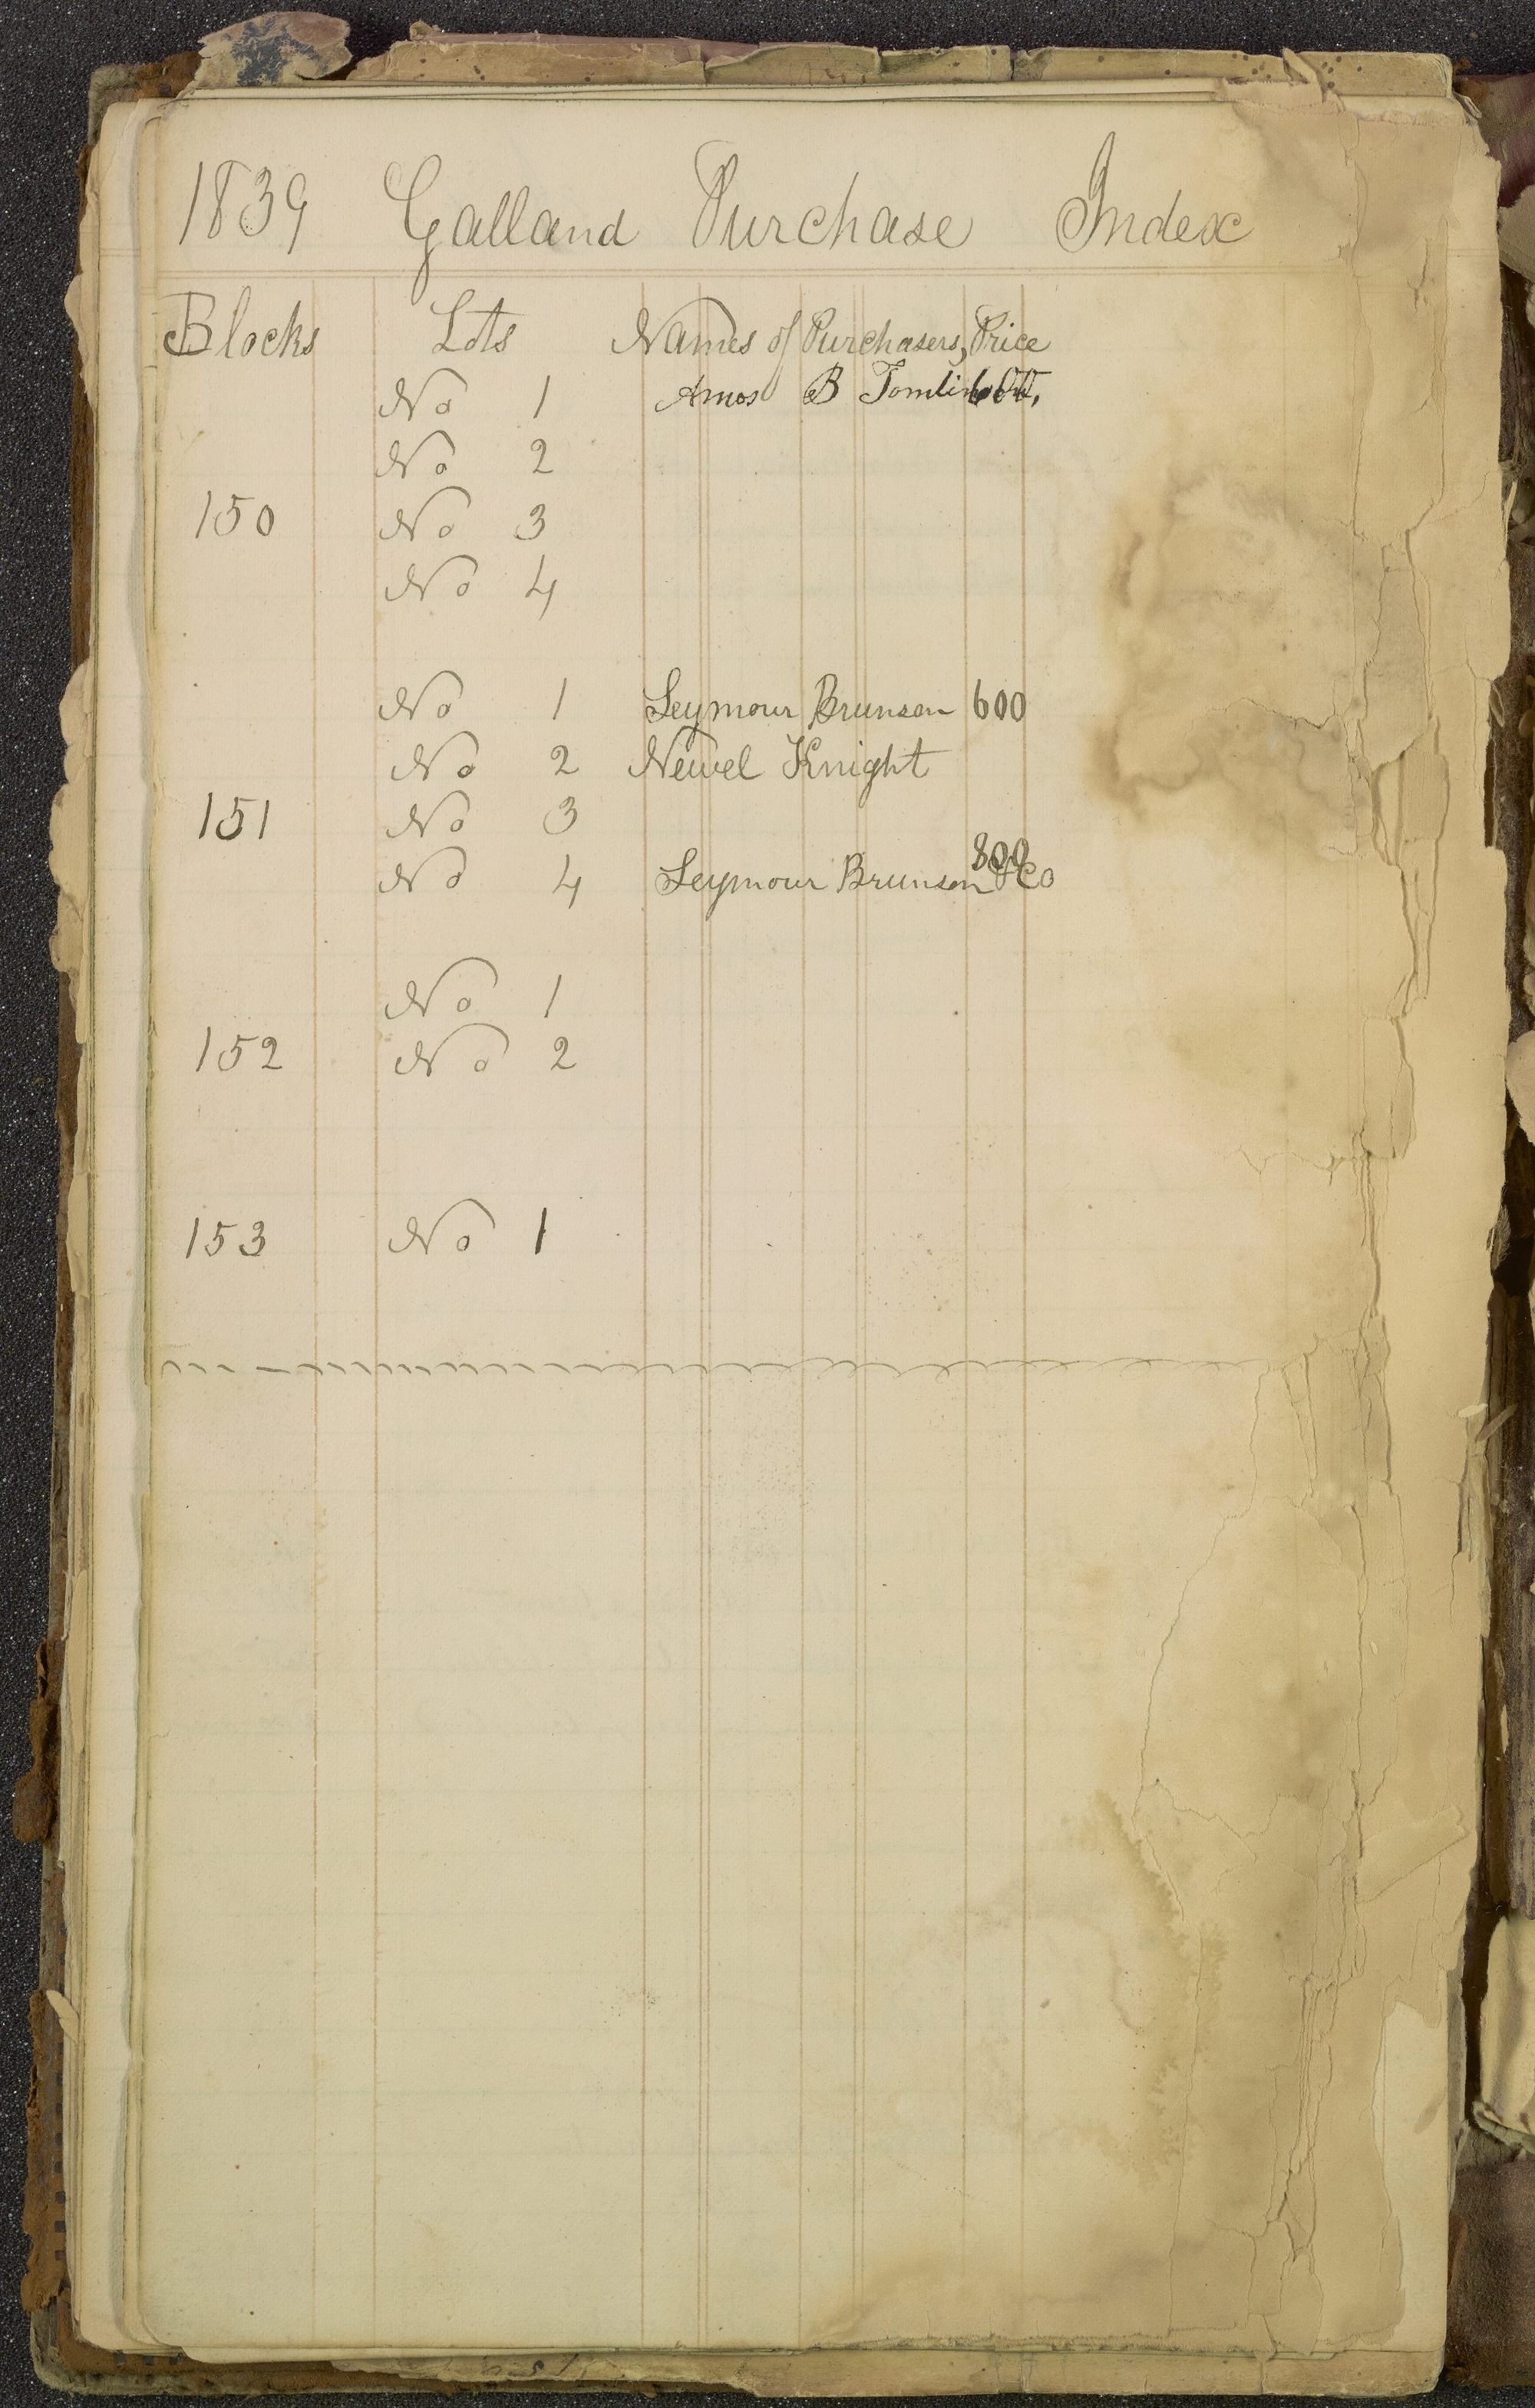 1839 Galland Purchase Index
Blocks Lots Names of Purchasers, Price
No 1 Amos B 600,
No 2
150 No 3
No 4
No 1 Seymour Brunson 600
No 2 Newel Knight
151 No 3
800
No 4 Seymour Brunson & Co
No 1
152 No 2
153 No 1